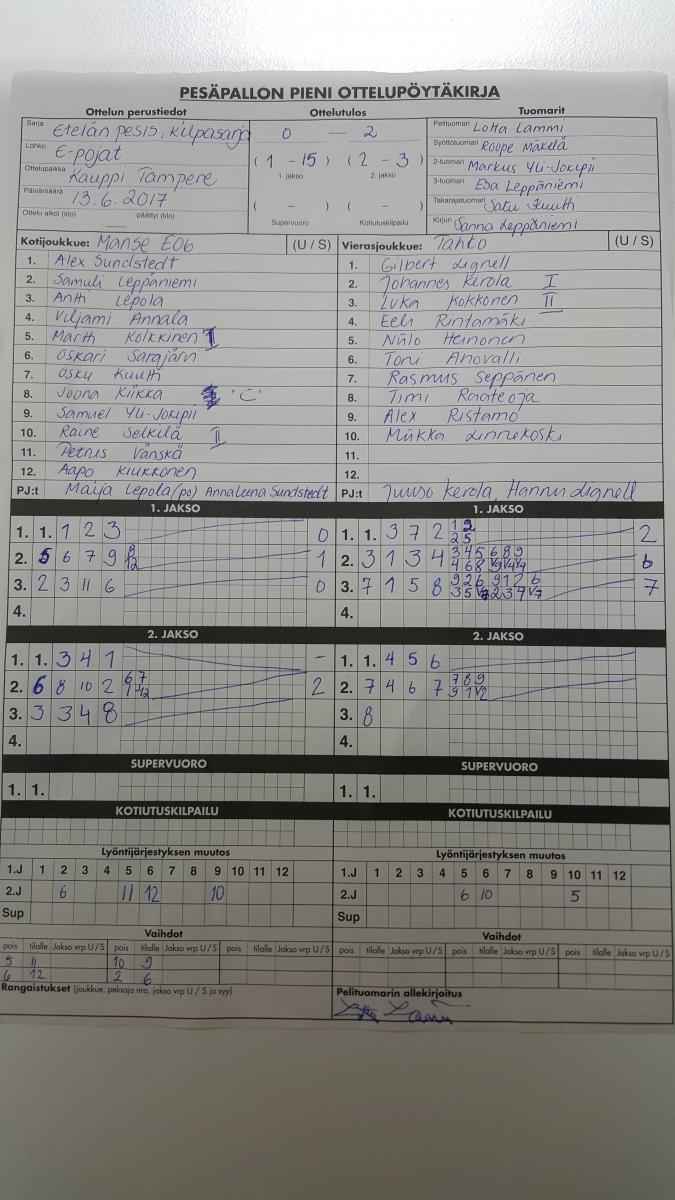 PESÄPALLON PIENI OTTELUPÖYTÄKIRJA
Ottelun perustiedot
Sarja Etelän pesis, kilpasarja
Lohko E-pojat
Ottelupaikka Kauppi Tampere
Päivämäärä 13.6.2017
Ottelu alkoi (klo) päättyi (klo)
Ottelutulos
0 — 2
(1 - 15) (2 - 3)
1. jakso 2. jakso
( - ) ( - )
Supervuoro Kotiutuskilpailu
Tuomarit
Pelituomari Lotta Lammi
Syöttötuomari Roope Mäkelä
2-tuomari Markus Yli-Jokipii
3-tuomari Esa Leppäniemi
Takarajatuomari Satu Kuutti
Kirjuri Sanna Leppäniemi
Kotijoukkue: Manse E06 (U / S)
1. Alex Sundstedt
2. Samuli Leppäniemi
3. Antti Lepola
4. Viljami Annala
5. Martti Kolkkinen I
6. Oskari Sarajärvi
7. Osku Kuutti
8. Joona Kiikka "C"
9. Samuel Yli-Jokipii
10. Raine Selkilä II
11. Petrus Vänskä
12. Aapo Kiukkonen
PJ:t Maija Lepola (po) Annaleena Sundstedt
Vierasjoukkue: Tahko (U / S)
1. Gilbert Lignell
2. Johannes Kerola I
3. Luka Kokkonen II
4. Eeli Rintamäki
5. Niilo Heinonen
6. Toni Ahovalli
7. Rasmus Seppänen
8. Timi Raateoja
9. Alex Ristamo
10. Miikka Linnekoski
11.
12.
PJ:t Juuso Kerola, Hannu Lignell
1. JAKSO
1. 1. 1 2 3 0
2. 5 6 7 9 8 12 1
3. 2 3 11 6 0
4.
1. JAKSO
1. 1. 3 7 2 1 2 2 5 2
2. 3 1 3 4 3 4 5 6 8 9 6
3. 7 1 5 8 9 2 6 9 1 2 6 7
4.
2. JAKSO
1. 1. 3 4 1 -
2. 6 8 10 2 6 7 2
3. 3 3 4 8
4.
2. JAKSO
1. 1. 4 5 6
2. 7 4 6 7 7 8 9
3. 8
4.
SUPERVUORO
1. 1.
SUPERVUORO
1. 1.
KOTIUTUSKILPAILU
KOTIUTUSKILPAILU
Lyöntijärjestyksen muutos
1.J 1 2 3 4 5 6 7 8 9 10 11 12
2.J 6 11 12 10
Sup
Lyöntijärjestyksen muutos
1.J 1 2 3 4 5 6 7 8 9 10 11 12
2.J 6 10 5
Sup
Vaihdot
pois tilalle Jakso vrp U/S pois tilalle Jakso vrp U/S pois tilalle Jakso vrp U/S
5 11 10 9
6 12 2 6
Vaihdot
pois tilalle Jakso vrp U/S pois tilalle Jakso vrp U/S pois tilalle Jakso vrp U/S
Rangaistukset (joukkue, pelaaja nro, jakso vrp U / S ja syy)
Pelituomarin allekirjoitus
Lotta Lammi